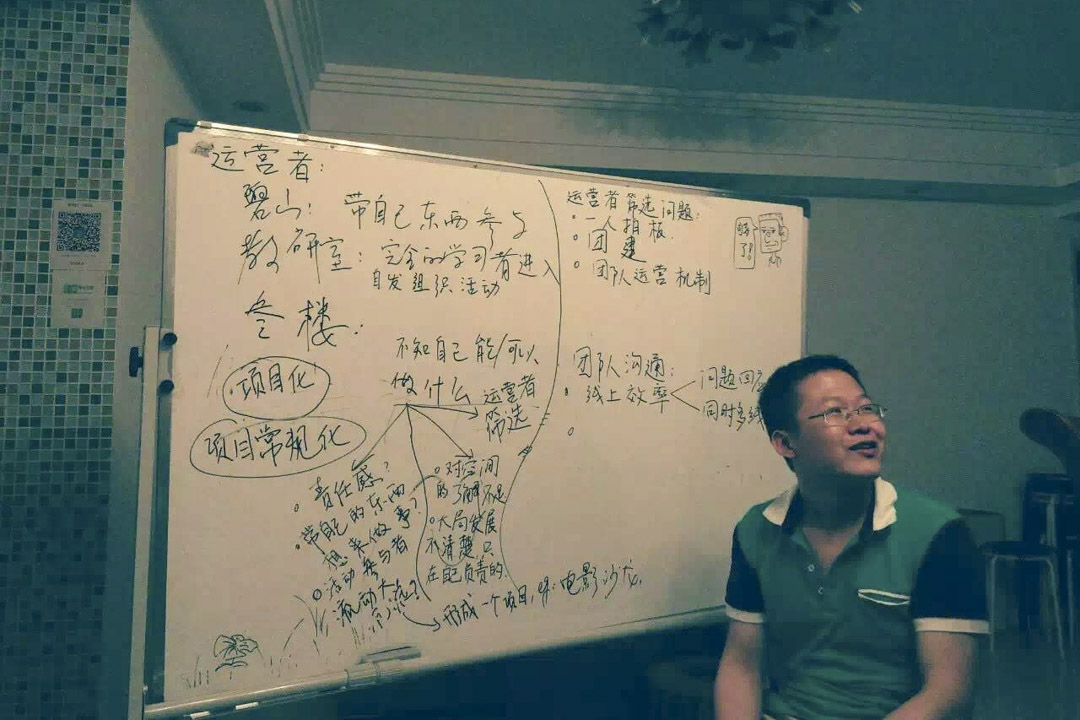 运营者:
碧山: 带自己东西参与
教研室: 完全的学习者进入
自发组织活动
叁楼:
不知自己能/可以
做什么
运营者
筛选
项目化
项目常规化
责任感?
带自己的东西
想来做事?
活动参与者
流动大
对空间
的了解不足
大局发展
不清楚,只
在自己负责的
形成一个项目,电影沙龙,
运营者筛选问题:
一人拍板
团建
团队运营机制
够了!
团队沟通:
线上效率
问题回
同时多线